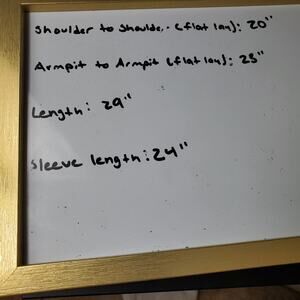 Shoulder to Shoulder (flat lay): 20"
Armpit to Armpit (flat lay): 25"
Length: 29"
Sleeve length: 24"